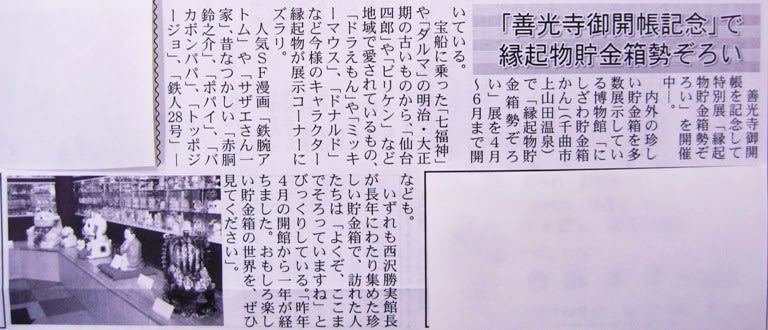 「善光寺御開帳記念」で
縁起物貯金箱勢ぞろい
善光寺御開
帳を記念して
特別展「縁起
物貯金箱勢ぞ
ろい」を開催
中―。
内外の珍し
い貯金箱を多
数展示してい
る博物館「に
しざわ貯金箱
かん」(千曲市
上山田温泉)
で「縁起物貯
金箱勢ぞろ
い」展を4月
〜6月まで開
いている。
宝船に乗った「七福神」
や「ダルマ」の明治・大正
期の古いものから、「仙台
四郎」や「ビリケン」など
地域で愛されているもの、
「ドラえもん」や「ミッキ
ーマウス」、「ドナルド」
など今様のキャラクター
縁起物が展示コーナーに
ズラリ。
人気SF漫画「鉄腕ア
トム」や「サザエさん一
家」、昔なつかしい「赤胴
鈴之介」、「ポパイ」、「バ
カボンパパ」、「トッポジ
ージョ」、「鉄人28号」―
なども。
いずれも西沢勝実館長
が長年にわたり集めた珍
しい貯金箱で、訪れた人
たちは「よくぞ、ここま
でそろっていますね」と
びっくりしている。「昨年
4月の開館から一年が経
ちました。おもしろ楽し
い貯金箱の世界を、ぜひ
見てください」。